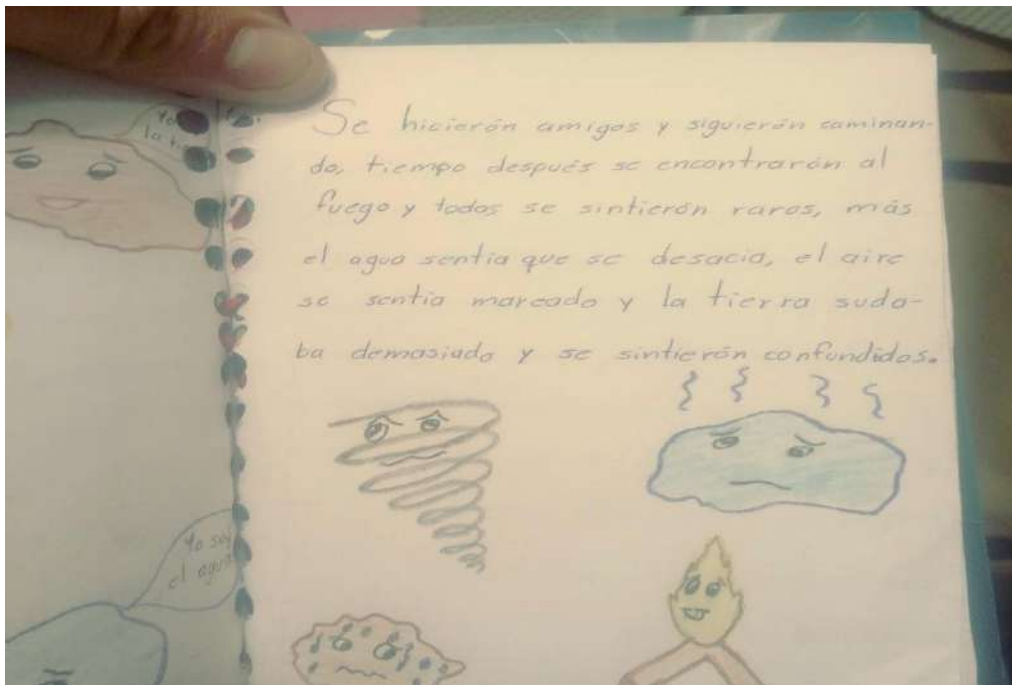 Yo
la
Se hicierón amigos y siguierón caminan-
do, tiempo después se encontrarón al
fuego y todos se sintierón raros, más
el agua sentia que se desacia, el aire
se sentia mareado y la tierra suda-
ba demasiado y se sintierón confundidos.
Yo soy
el agua